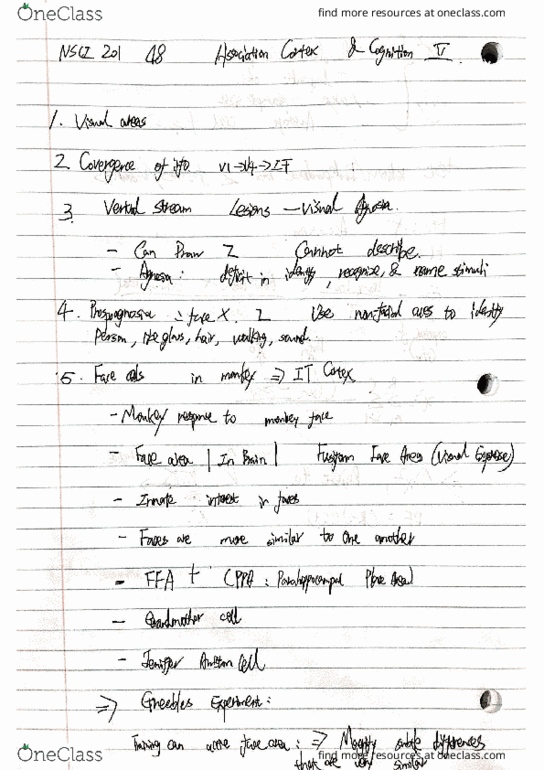 OneClass
find more resources at oneclass.com
NSCI 201 48 Association Cortex & Cognition V
1. Visual areas
2. Covergence of info V1→V4→IT
3. Ventral stream Lesions — visual Agnosia.
- Can Draw 2 Cannot describe.
- Agnosia: deficit in identify, recognize, & name stimuli
4. Prosopagnosia : face X. 2 Use non-facial cues to identify
Person, like glass, hair, walking, sound.
5. Face cells in monkey ⇒ IT Cortex.
- Monkey response to monkey face
- Face area | In Brain | Fusiform Face Area (Visual Expertise)
- Innate interest in faces
- Faces are more similar to One another
- FFA + (PPA: Parahippocampal Place Area)
- Grandmother cell
- Jennifer Aniston Cell
⇒ Greebles Experiment:
Training can face area: ⇒ differences
that are very similar
OneClass
find more resources at oneclass.com